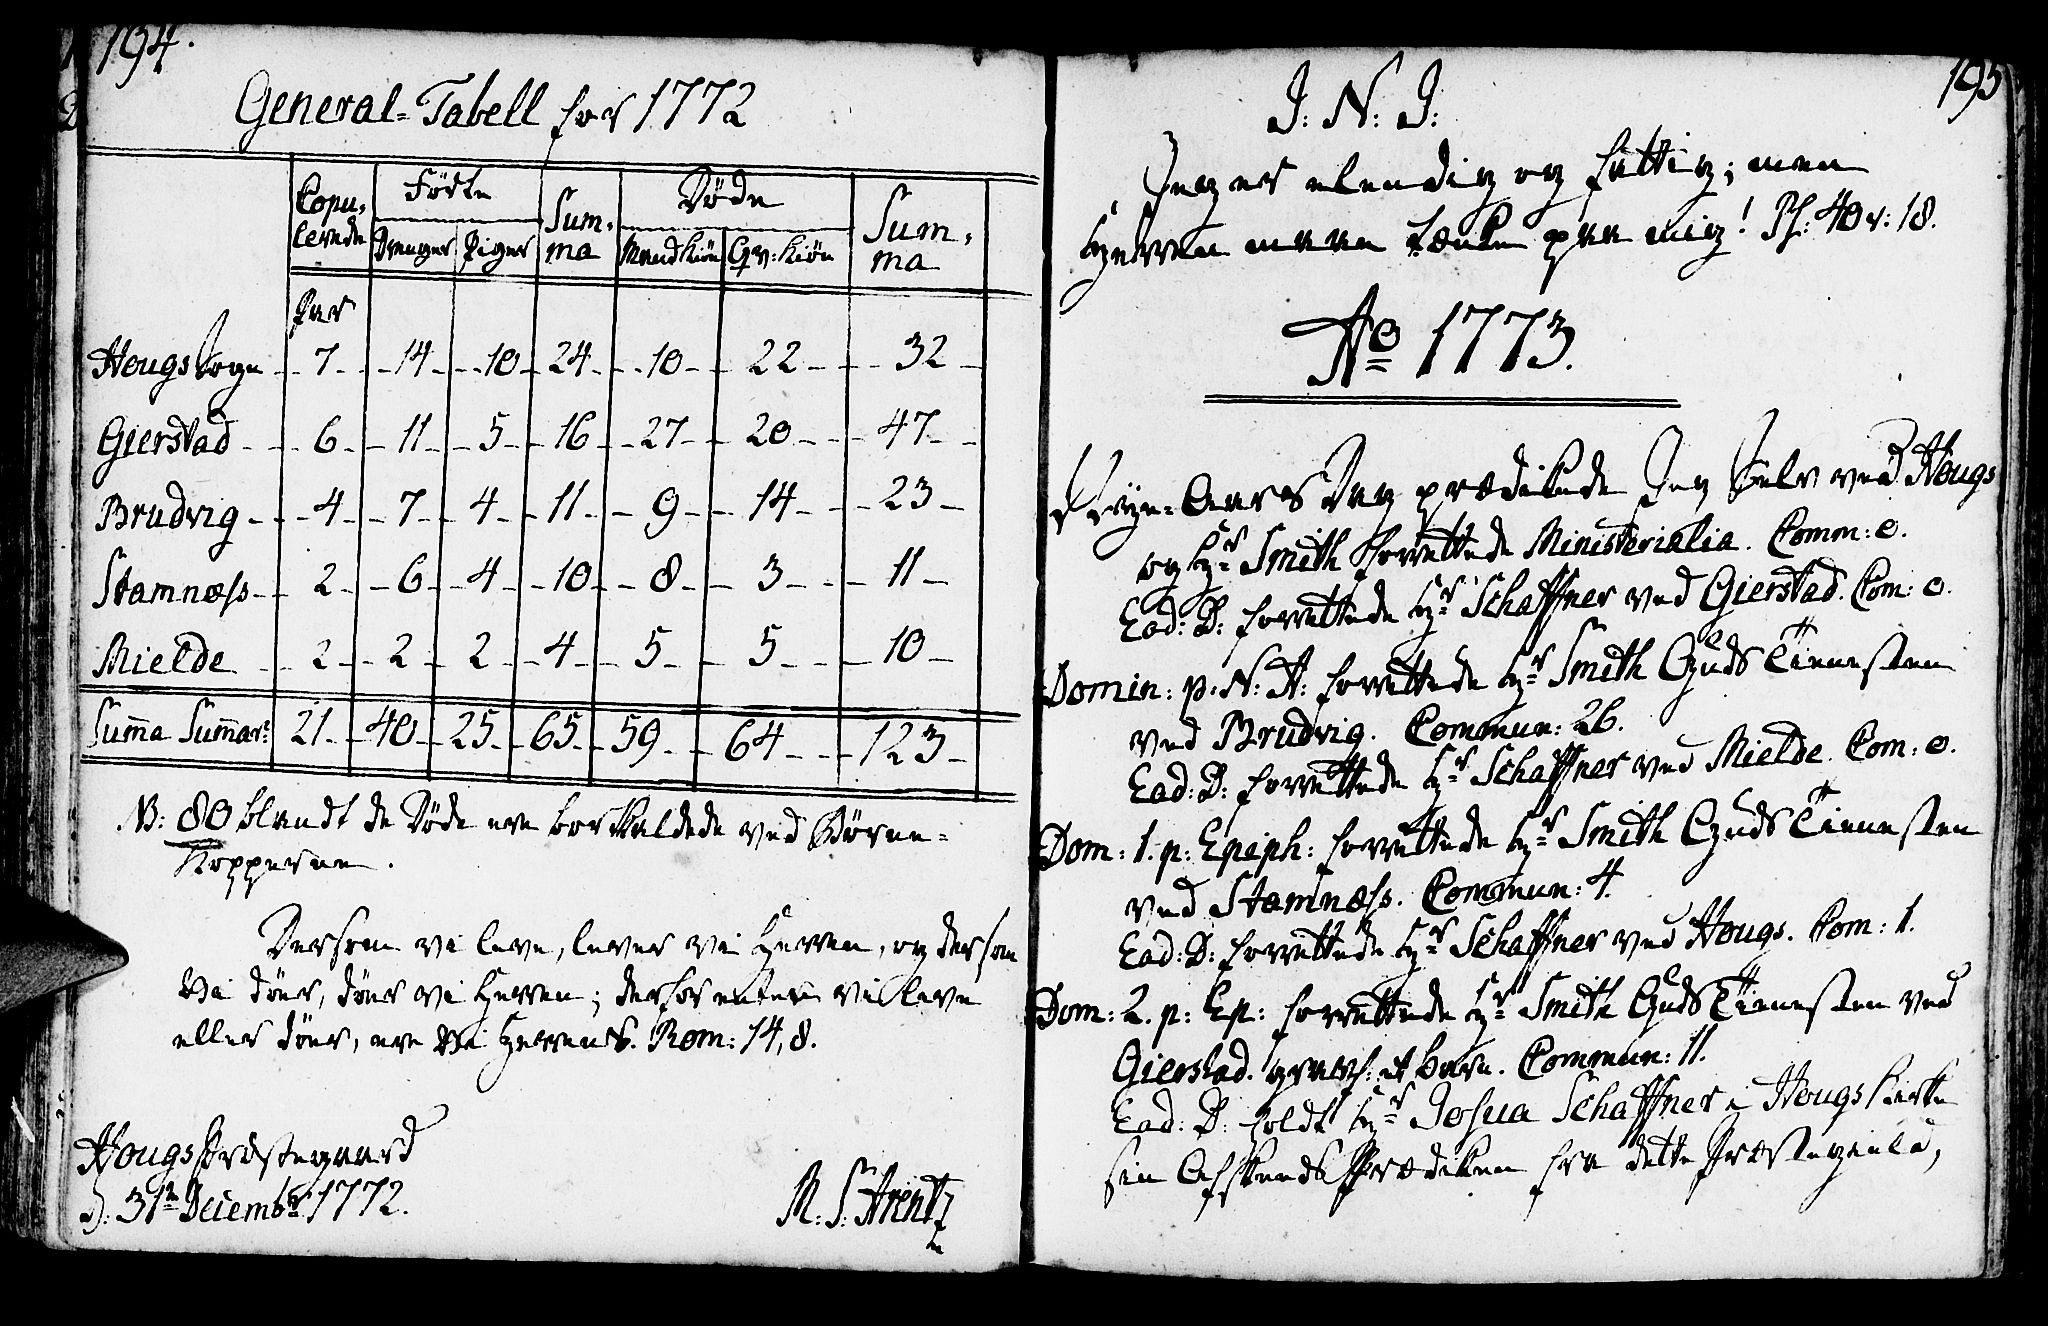 194.
General-Tabell for 1772
Copu-
lerede
Fødte
Drenger
Piger
Sum-
ma
Døde
Mandkiøn
Qv: kiøn
Sum-
ma
Par
Hougs Sogn - - 7 - - 14 - - 10 - 24 - - 10 - - 22 - - 32 -
Gierstad - - 6 - - 11 - - 5 - - 16 - - 27 - - 20 - - 47 -
Brudvig - - 4 - - 7 - - 4 - - 11 - - 9 - - 14 - - 23 -
Stamnæss - - 2 - - 6 - - 4 - - 10 - - 8 - - 3 - - 11 -
Mielde - - 2 - - 2 - - 2 - - 4 - - 5 - - 5 - - 10 -
Suma Sumar: 21 - - 40 - - 25 - - 65 - - 59 - - 64 - - 123 -
NB: 80 blandt de Døde ere bortkaldede ved Børne-
Kopperne.
Dersom vi leve, lever vi Herren, og dersom
Vi døer, døer vi Herren; derfor enten vi leve
eller døer, ere Vi Herrens. Rom: 14, 8.
Hougs Præstegaard
D: 31te Decembr 1772.
M: S: Arentz
195
J: N: J:
Jeg er elendig og fattig; men
Herren maae tænke paa mig! Ps: 40 v: 18.
Ao 1773.
Nye-Aars Dag prædikede Jeg Selv ved Hougs
og Hr Smith forrettede Ministerialia. Comm: 0.
Ead: D: forrettede Hr Schaffner ved Gierstad. Com: 0.
Domin: p: N: A: forrettede Hr Smith Guds Tienesten
ved Brudvig. Commun: 26.
Ead: D: forrettede Hr Schaffner ved Mielde. Com: 0.
Dom: 1. p: Epiph: forrettede Hr Smith Guds Tienesten
ved Stamnæss. Commun: 4.
Ead: D: forrettede Hr Schaffner ved Hougs. Com: 1.
Dom: 2. p: Ep: forrettede Hr Smith Guds Tienesten ved
Gierstad. et barn. Commun: 11.
Ead: D: holdt Hr Josua Schaffner i Hougs kirke
sin Afskeeds Prædiken fra dette Præstegield,